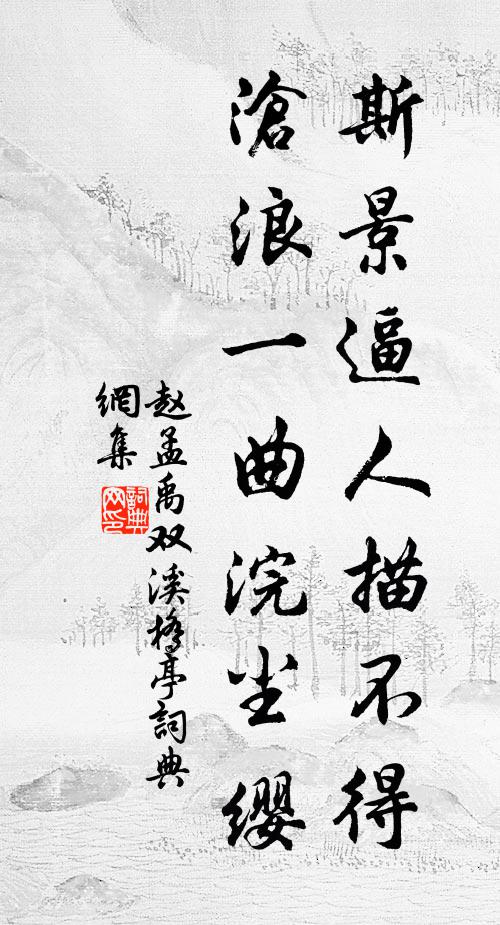 斯景逼人描不得
滄浪一曲浣尘缨
赵孟禹双溪橋亭詞典
網集
詞典
网印